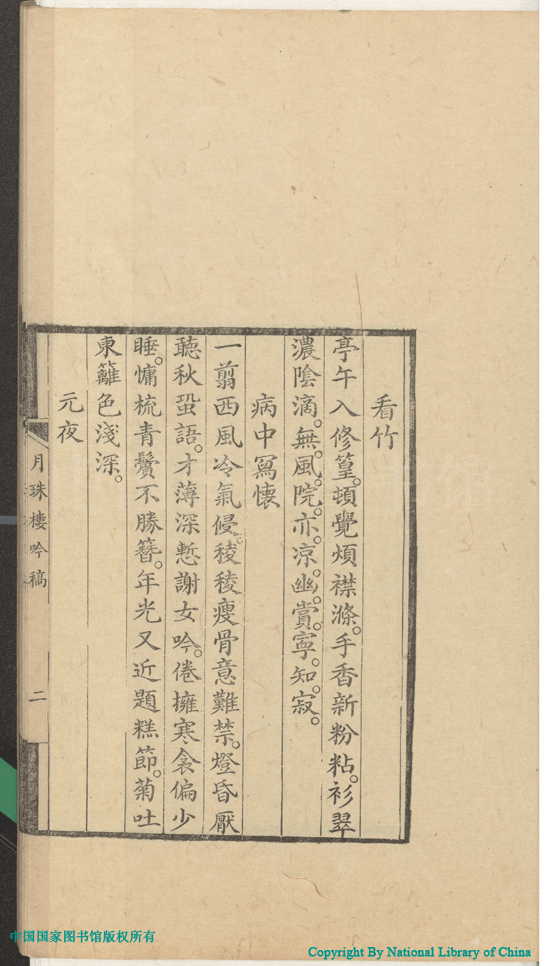 看竹
亭午入修篁。頓覺煩襟滌。手香新粉粘。衫翠
濃陰滴。無。風。院。亦。凉。幽。賞。寧。知。寂。
病中寫懷
一翦西風冷氣侵。稜稜瘦骨意難禁。燈昏厭
聽秋蛩語。才薄深慙謝女吟。倦擁寒衾偏少
睡。慵梳青鬢不勝簪。年光又近題糕節。菊吐
東籬色淺深。
元夜
月珠樓吟稿
二
中国国家图书馆版权所有
Copyright By National Library of China